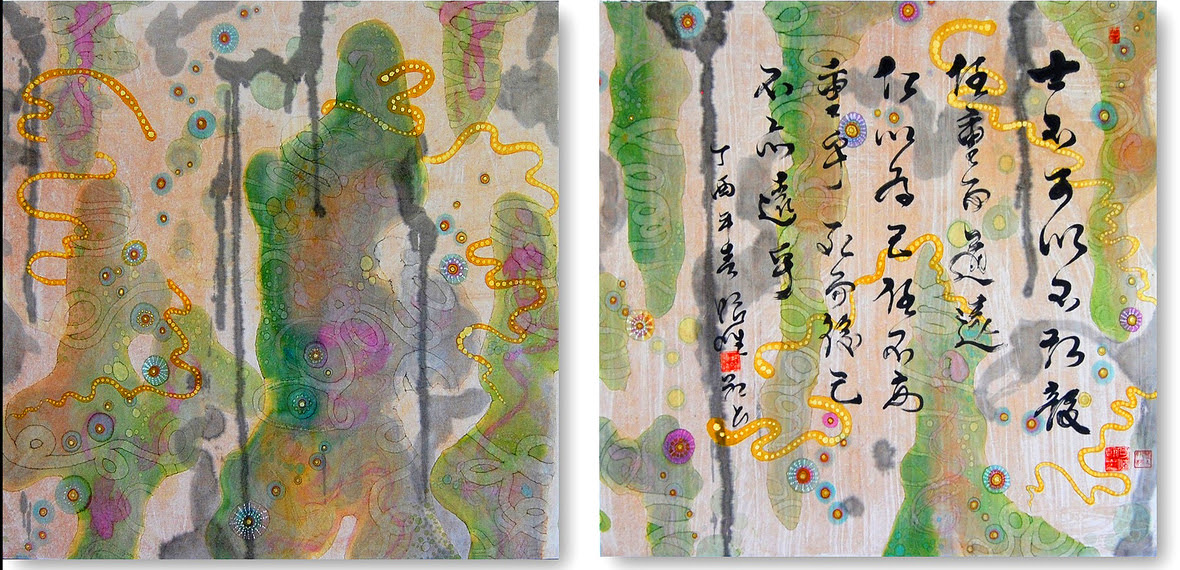 士不可以不弘毅
任重而道遠
仁以為己任不亦
重乎死而後已
不亦遠乎
丁酉年春